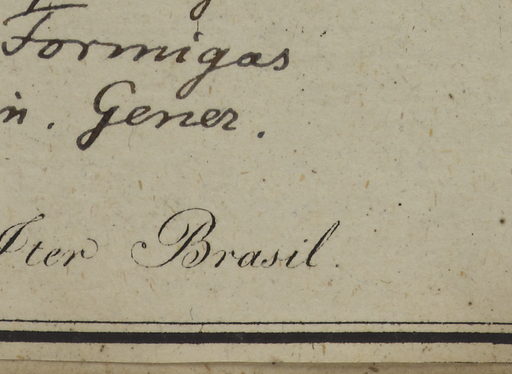 Formigas
in. Gener.
Iter Brasil.